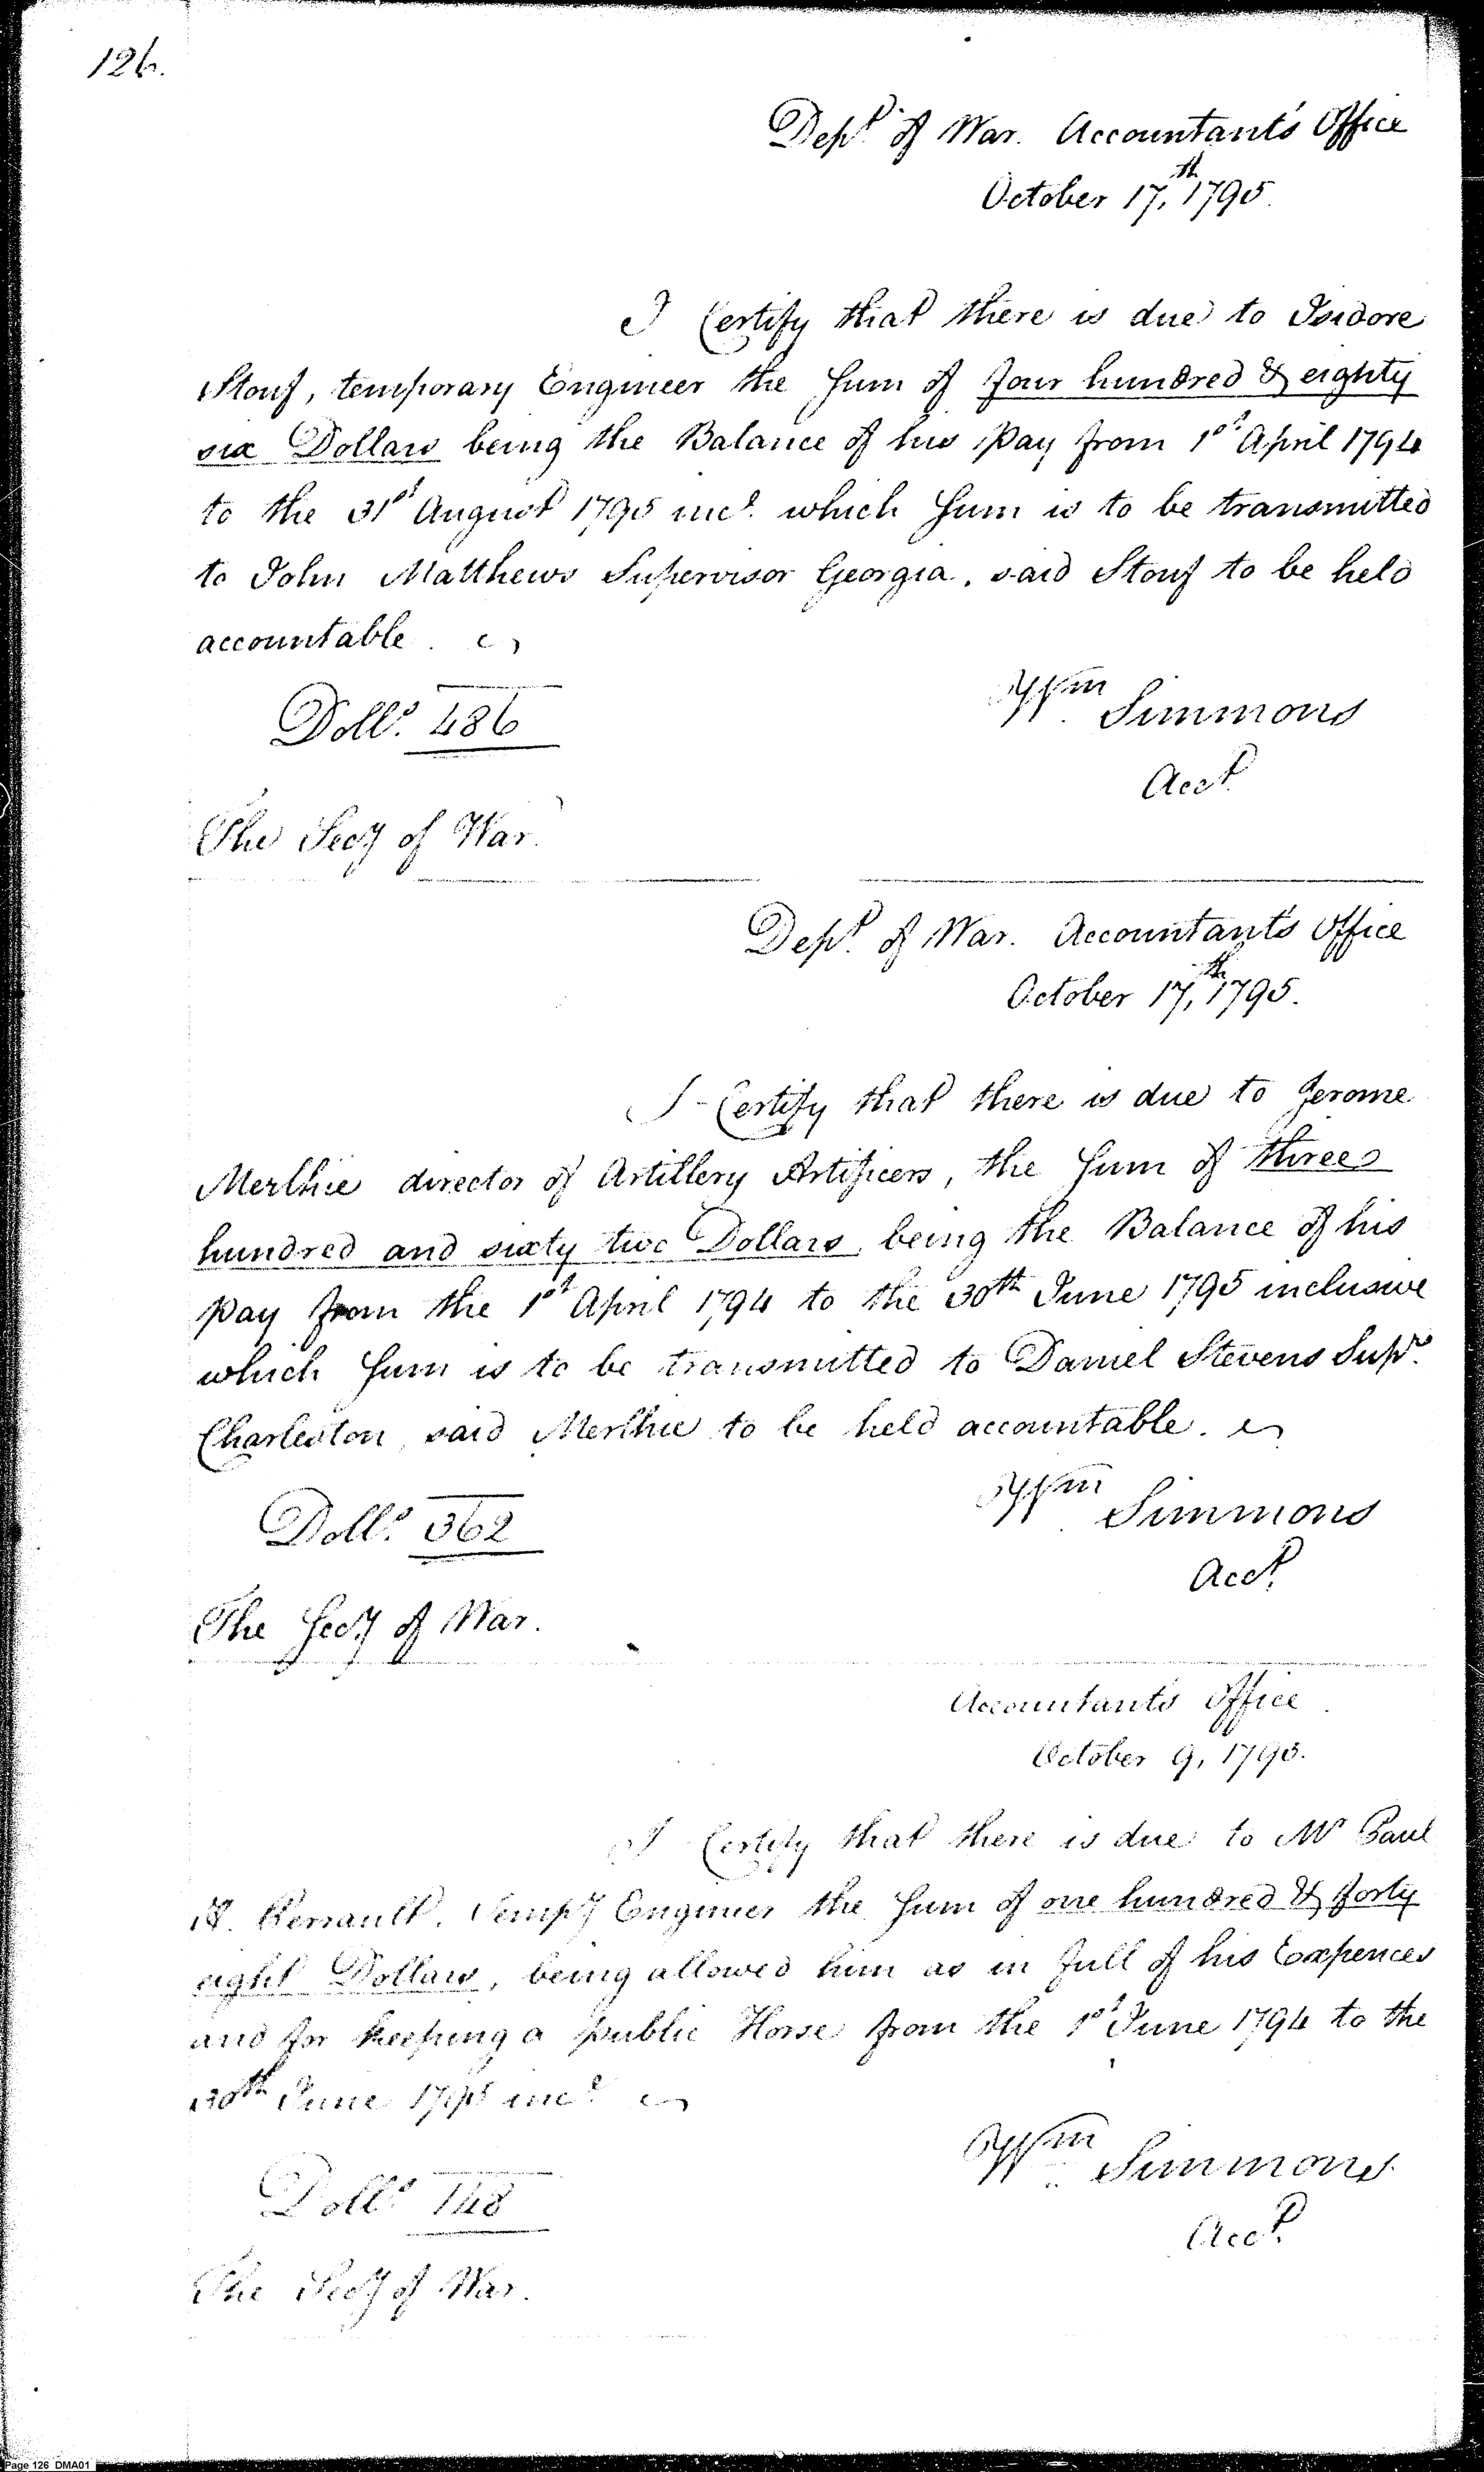 126.
Dept. of War. Accountant's Office
October 17,th 1795.
I Certify that there is due to Isidore
Stouf, temporary Engineer the Sum of four hundred & eighty
six Dollars being the Balance of his pay from 1st April 1794
to the 31st August 1795 incl. which Sum is to be transmitted
to John Matthews Supervisor Georgia, said Stouf to be held
accountable.
Dolls. 486
Wm Simmons
Acct.
The Secy of War.
Dept. of War. Accountant's Office
October 17,th 1795.
I Certify that there is due to Jerome
Merlhie director of Artillery Artificers, the Sum of three
hundred and sixty two Dollars, being the Balance of his
pay from the 1st April 1794 to the 30th June 1795 inclusive
which Sum is to be transmitted to Daniel Stevens Supr.
Charleston, said Merlhie to be held accountable.
Dolls. 362
Wm Simmons
Acct.
The Secy of War.
Accountants Office
October 9, 1795.
I Certify that there is due to Mr Paul
H. Perrault, Tempy Engineer the Sum of one hundred & forty
eight Dollars, being allowed him as in full of his Expences
and for keeping a public Horse from the 1st June 1794 to the
30th June 1795 incl.
Dolls. 148
Wm Simmons
Acct.
The Secy of War.
Page 126 DMA01